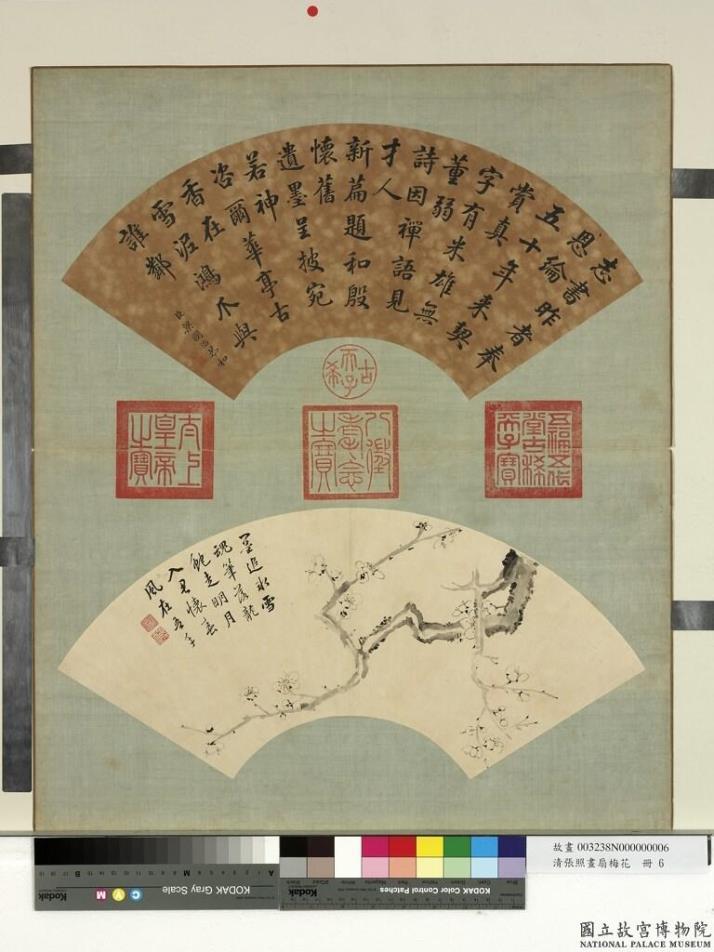 志書昨者奉
恩綸
五十年來契
賞真
字有米雄無
董弱
詩因禪語見
才人
新篇題和殷
懷舊
遺墨呈披宛
若神
咨爾華亭古
香在
雪泥鴻爪與
誰鄰
臣梁國治恭和
古希天子
五福五代堂古稀天子寶
八徵耄念之寶
太上皇帝之寶
墨追冰雪
魂筆落龍
蛇走明月
入君懷春
風在吾手
KODAK Gray Scale
KODAK Color Control Patches
故畫 003238N000000006
清張照畫扇梅花 冊 6
國立故宮博物院
NATIONAL PALACE MUSEUM